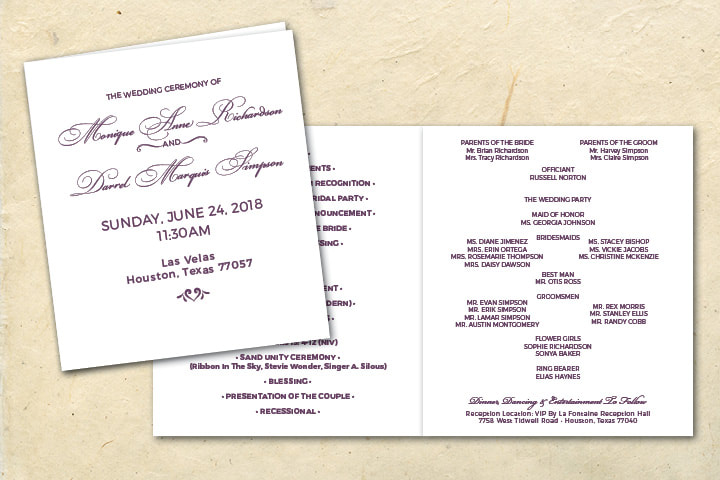 THE WEDDING CEREMONY OF
Monique Anne Richardson
AND
Darrel Marquis Simpson
SUNDAY, JUNE 24, 2018
11:30AM
Las Velas
Houston, Texas 77057
RECOGNITION •
PARTY •
BRIDE •
4-12 (NIV)
• SAND UNITY CEREMONY •
(Ribbon In The Sky, Stevie Wonder, Singer A. Silous)
• BLESSING •
• PRESENTATION OF THE COUPLE •
• RECESSIONAL •
PARENTS OF THE BRIDE
Mr. Brian Richardson
Mrs. Tracy Richardson
PARENTS OF THE GROOM
Mr. Harvey Simpson
Mrs. Claire Simpson
OFFICIANT
RUSSELL NORTON
THE WEDDING PARTY
MAID OF HONOR
MS. GEORGIA JOHNSON
BRIDESMAIDS
MS. DIANE JIMENEZ
MRS. ERIN ORTEGA
MRS. ROSEMARIE THOMPSON
MRS. DAISY DAWSON
MS. STACEY BISHOP
MS. VICKIE JACOBS
MS. CHRISTINE MCKENZIE
BEST MAN
MR. OTIS ROSS
GROOMSMEN
MR. EVAN SIMPSON
MR. ERIK SIMPSON
MR. LAMAR SIMPSON
MR. AUSTIN MONTGOMERY
MR. REX MORRIS
MR. STANLEY ELLIS
MR. RANDY COBB
FLOWER GIRLS
SOPHIE RICHARDSON
SONYA BAKER
RING BEARER
ELIAS HAYNES
Dinner, Dancing & Entertainment To Follow
Reception Location: VIP By La Fontaine Reception Hall
7758 West Tidwell Road • Houston, Texas 77040